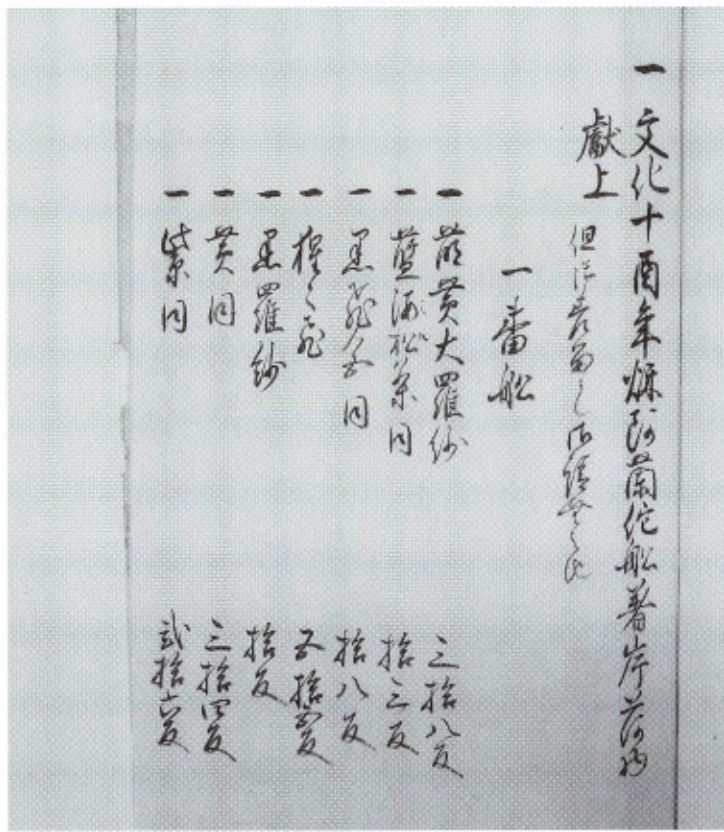 一 文化十酉年煤阿蘭佗船著岸荷物
献上
一番船
一 萌黄大羅紗 三拾八反
一 藍海松茶同 拾三反
一 黒飛色同 拾八反
一 猩々飛 五拾反
一 黒羅紗 拾反
一 黄同 三拾四反
一 紫同 弐拾六反